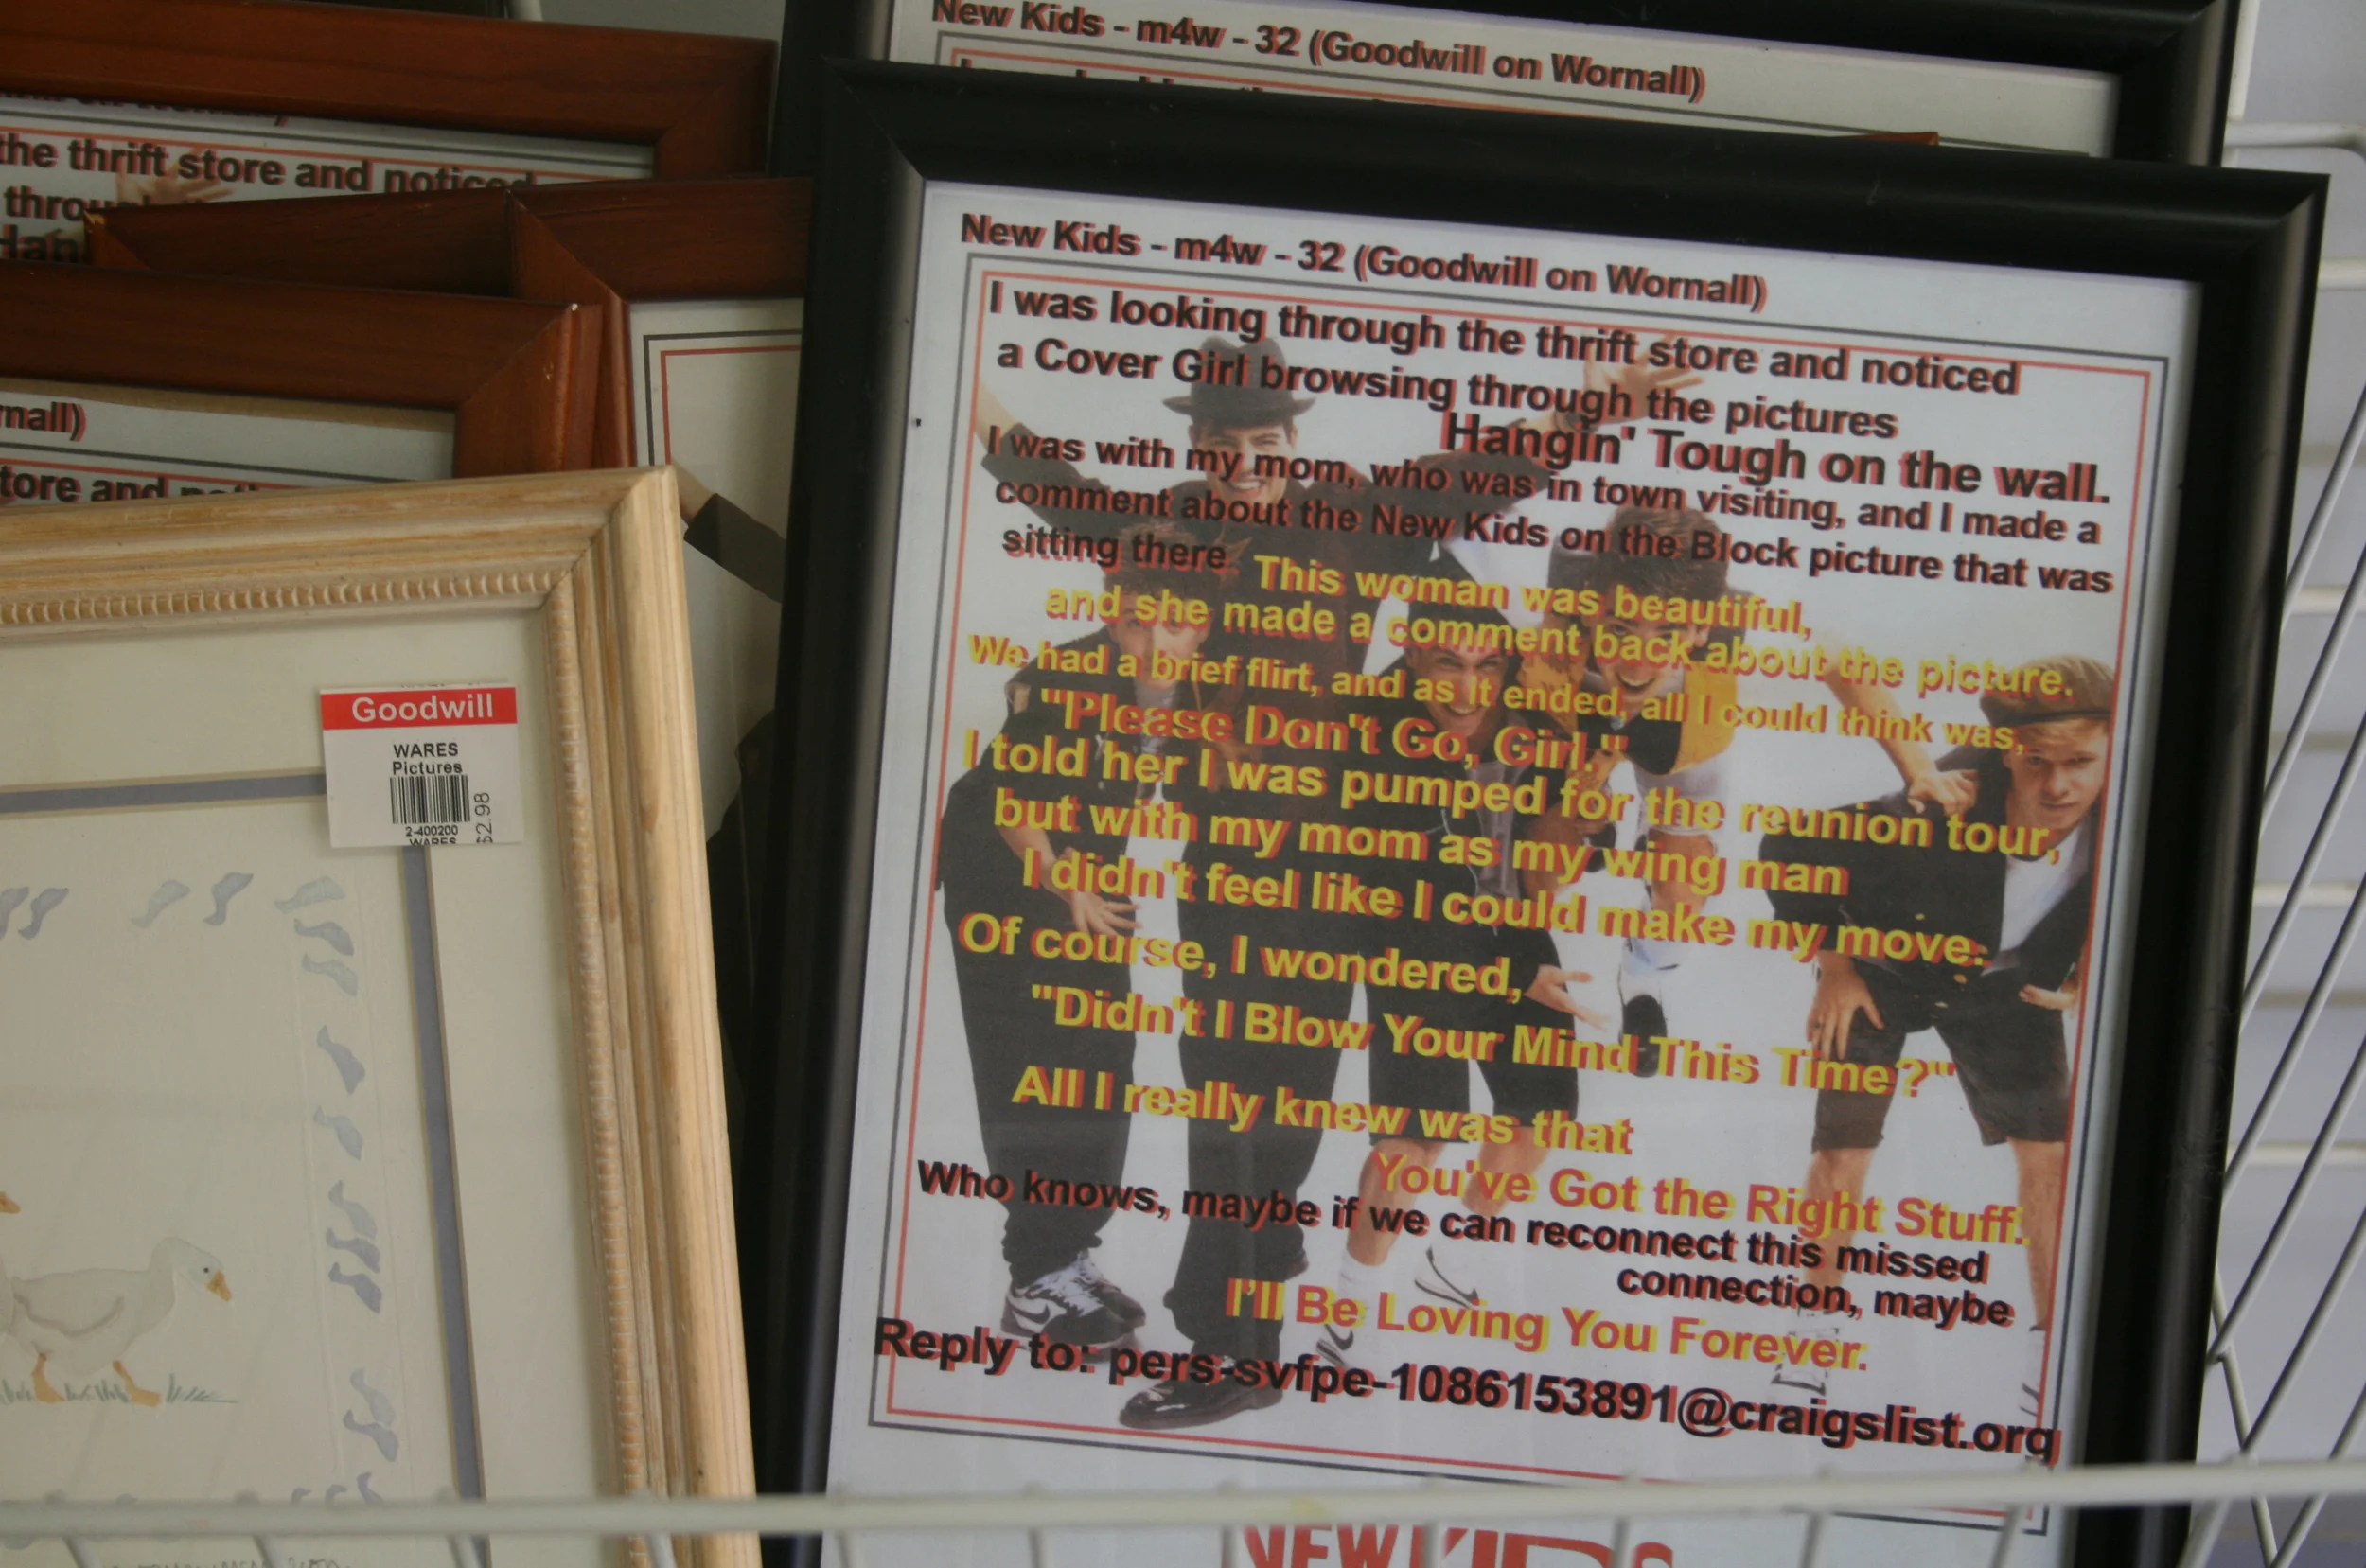 New Kids - m4w - 32 (Goodwill on Wornall)
the thrift store and noticed
Han
rnall)
tore and
Goodwill
WARES
Pictures
2-400200
WARES
$2.98
New Kids - m4w - 32 (Goodwill on Wornall)
I was looking through the thrift store and noticed
a Cover Girl browsing through the pictures
Hangin' Tough on the wall.
I was with my mom, who was in town visiting, and I made a
comment about the New Kids on the Block picture that was
sitting there. This woman was beautiful,
and she made a comment back about the picture.
We had a brief flirt, and as it ended, all I could think was,
"Please Don't Go, Girl."
I told her I was pumped for the reunion tour,
but with my mom as my wing man
I didn't feel like I could make my move.
Of course, I wondered,
"Didn't I Blow Your Mind This Time?"
All I really knew was that
You've Got the Right Stuff.
Who knows, maybe if we can reconnect this missed
connection, maybe
I'll Be Loving You Forever.
Reply to: pers-svfpe-1086153891@craigslist.org
NEW KIDS